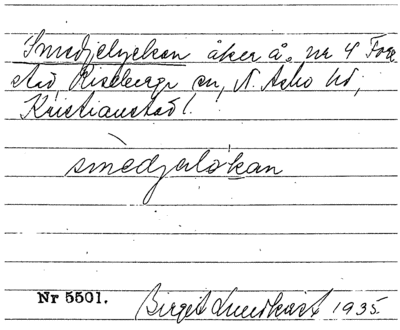 Smedjelyckan åker å. nr 4 Fore
stad, Riseberga sn, N. Åsbo hd,
Kristianstad l.
smèdjaløkan
Nr 5501. Birgit Lundkvist 1935.